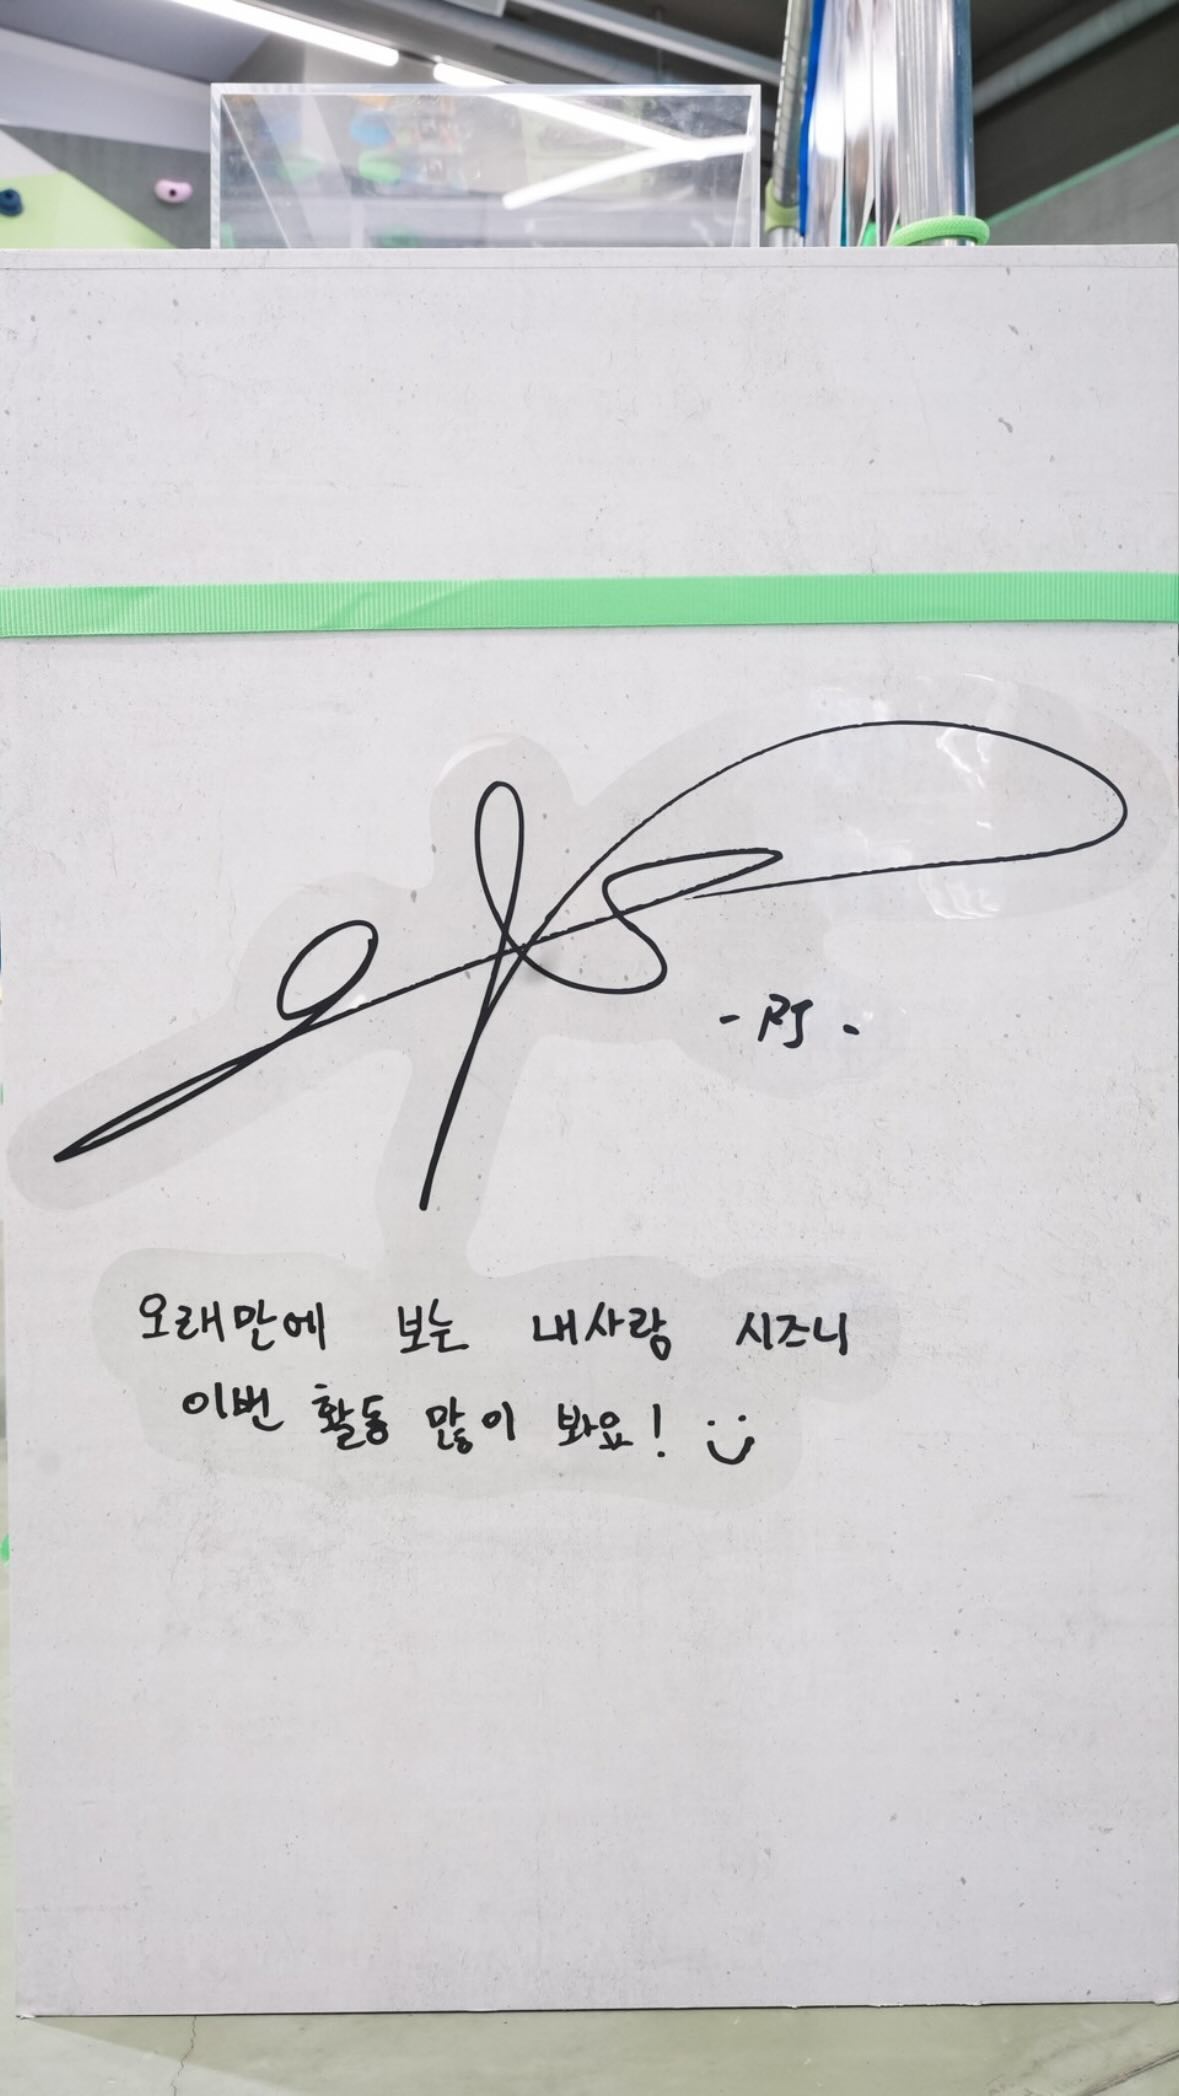 - RJ -
오래만에 보는 내사랑 시즈니
이번 활동 많이 봐요! :)